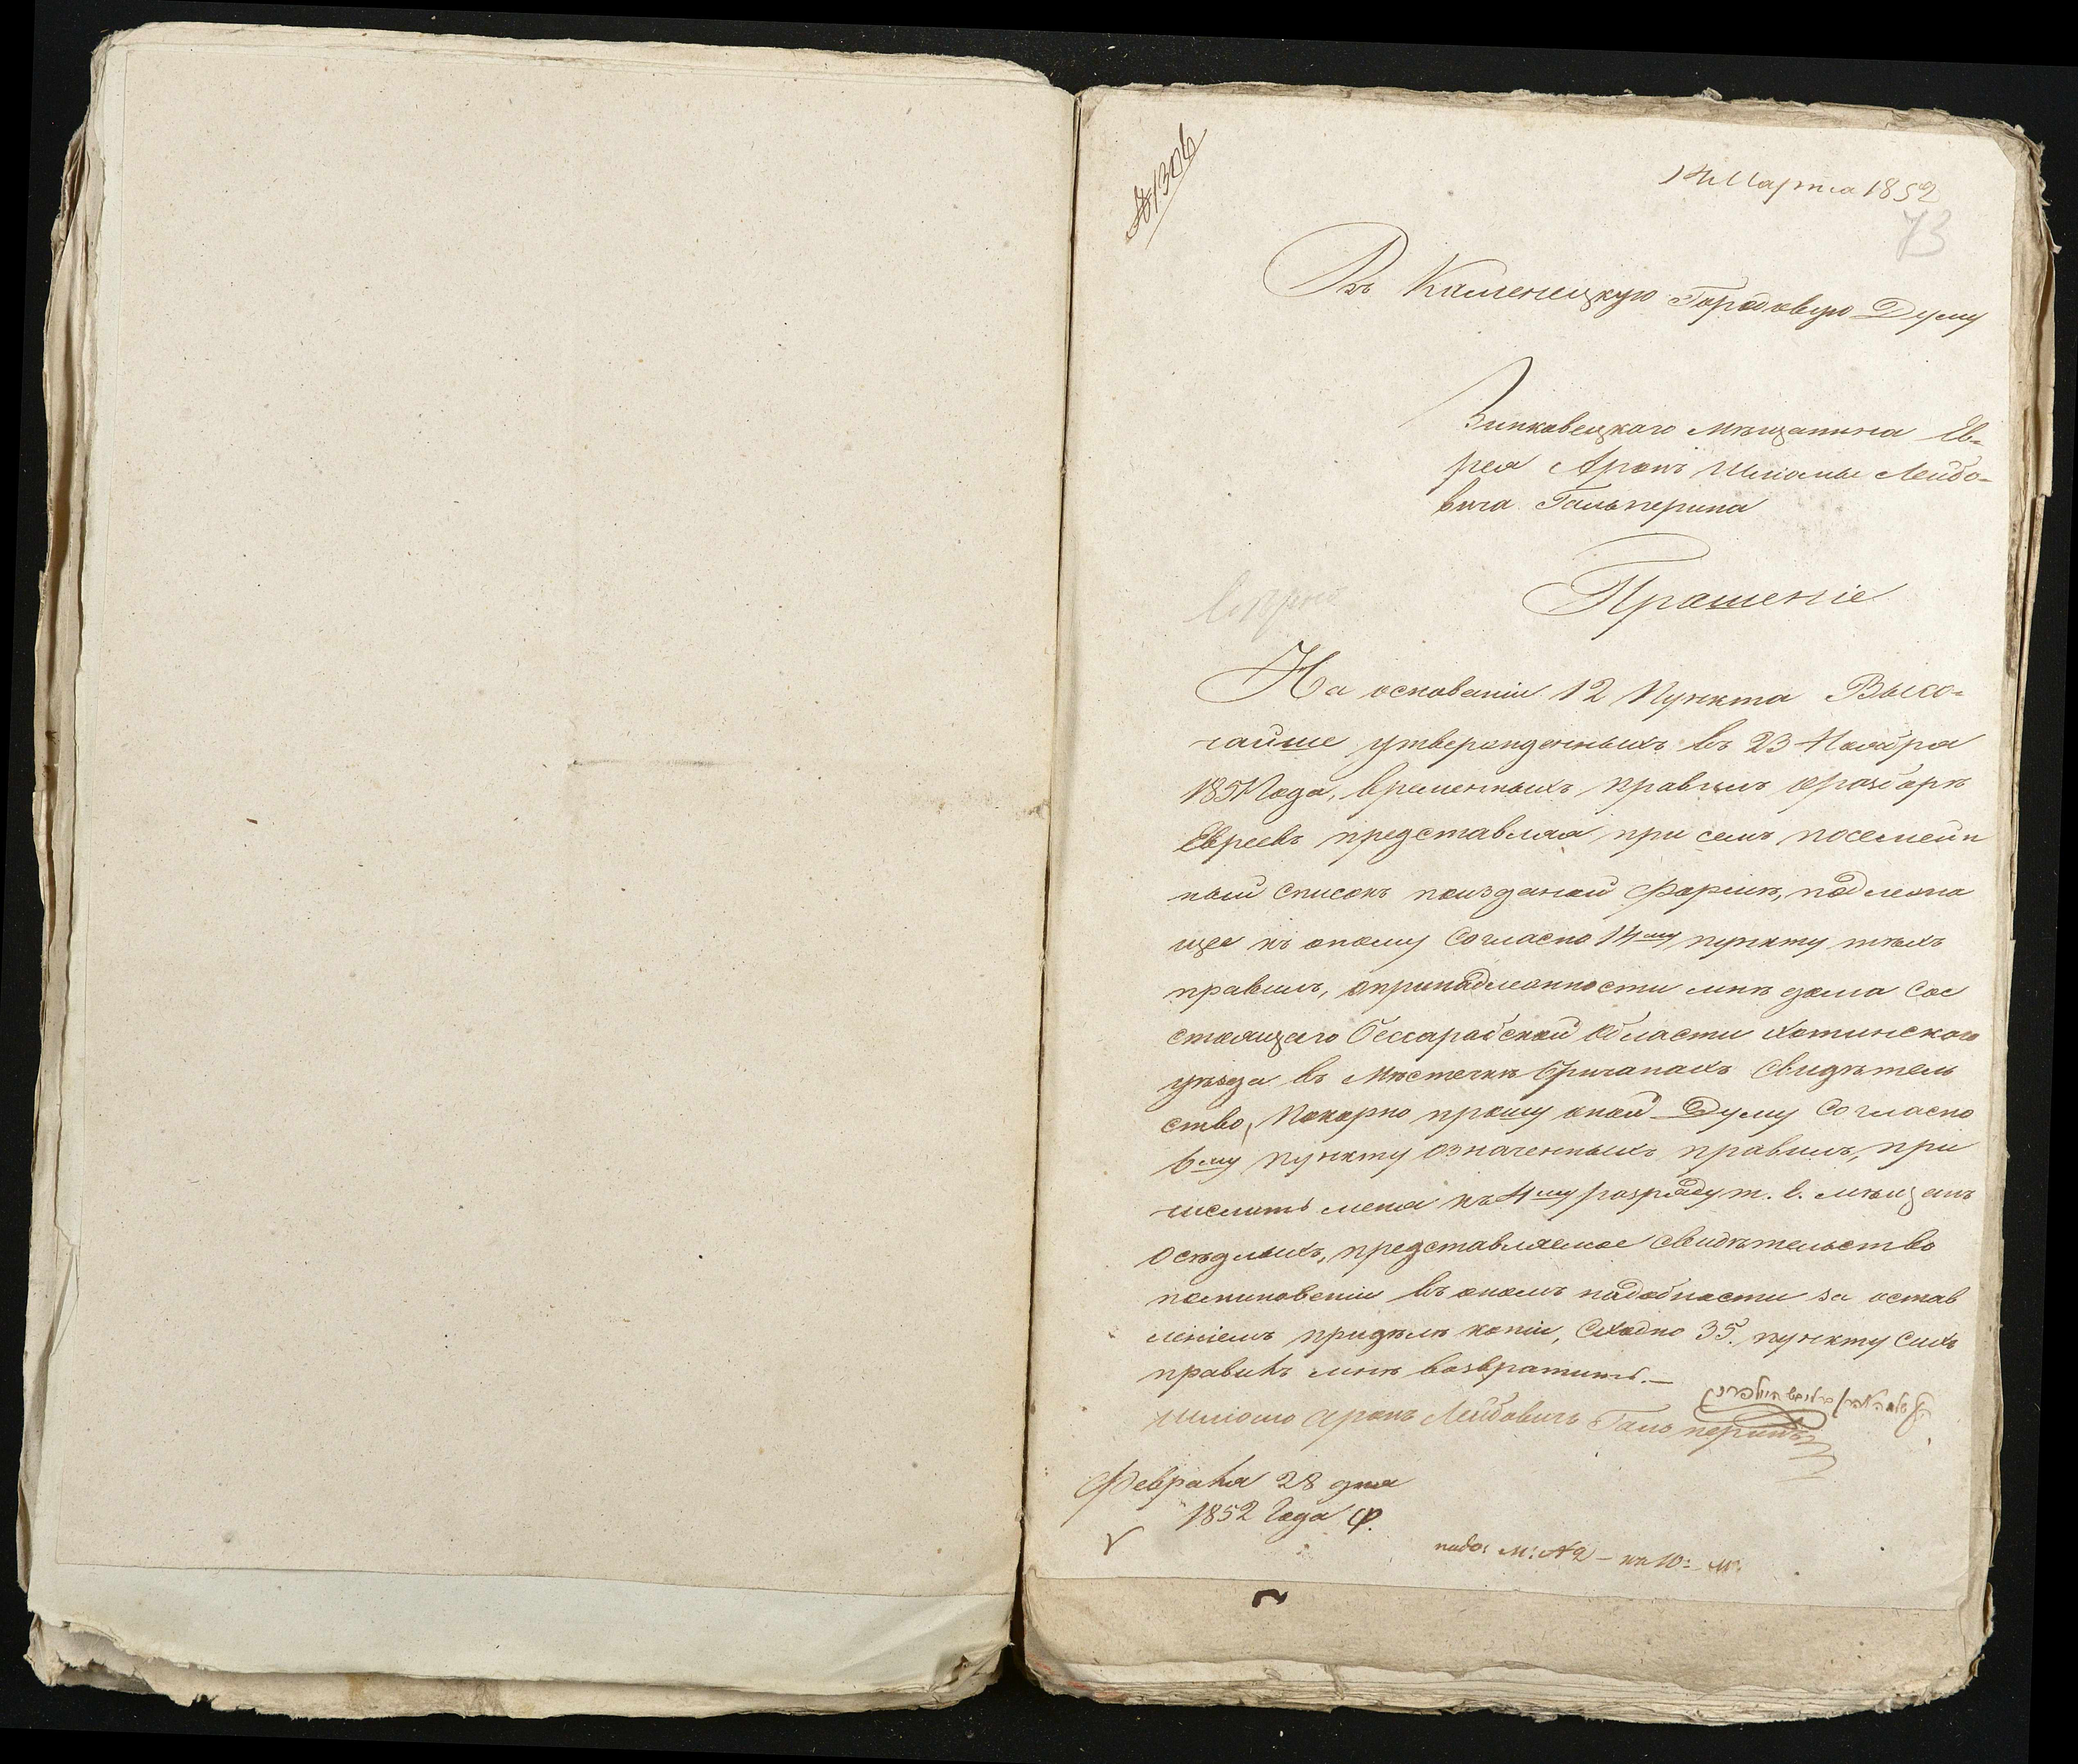 № 1306
14 Марта 1852
73
Въ Каменецкую Городовую Думу
Зинковецкаго мѣщанина Ев-
рея Аронъ Шлiомы Лейбо-
вича Гальперина
Прошенiе
На основанiи 12 Пункта Высо-
чайше утвержденныхъ въ 23 Ноября
1851 Года, временныхъ правилъ оразборѣ
Евреевъ представляя при семъ посемейн
ный списокъ поизданой Формѣ, подлежа
щее къ оному Согласно 14му пункту тѣхъ
правилъ, опринадлежности мнѣ дома Сос
стоящаго Бессарабской Области Хотинскаго
уѣзда въ Мѣстечкѣ Бричанахъ Свидѣтель
ство, Покорно прошу оной Думу Согласно
6му Пункту означенныхъ правилъ, при
числить меня къ 4му разряду т. е. мѣщанъ
Осѣдлыхъ, представляемое Свидѣтельство
поминовенiи въ ономъ надобности за остав
ленiемъ придѣлѣ копiи, Сходно 35. пункту Сихъ
правилъ мнѣ возвратить.—
Шлiомо Аронъ Лейбовичъ Гальперинъ
Февраля 28 дня
1852 Года